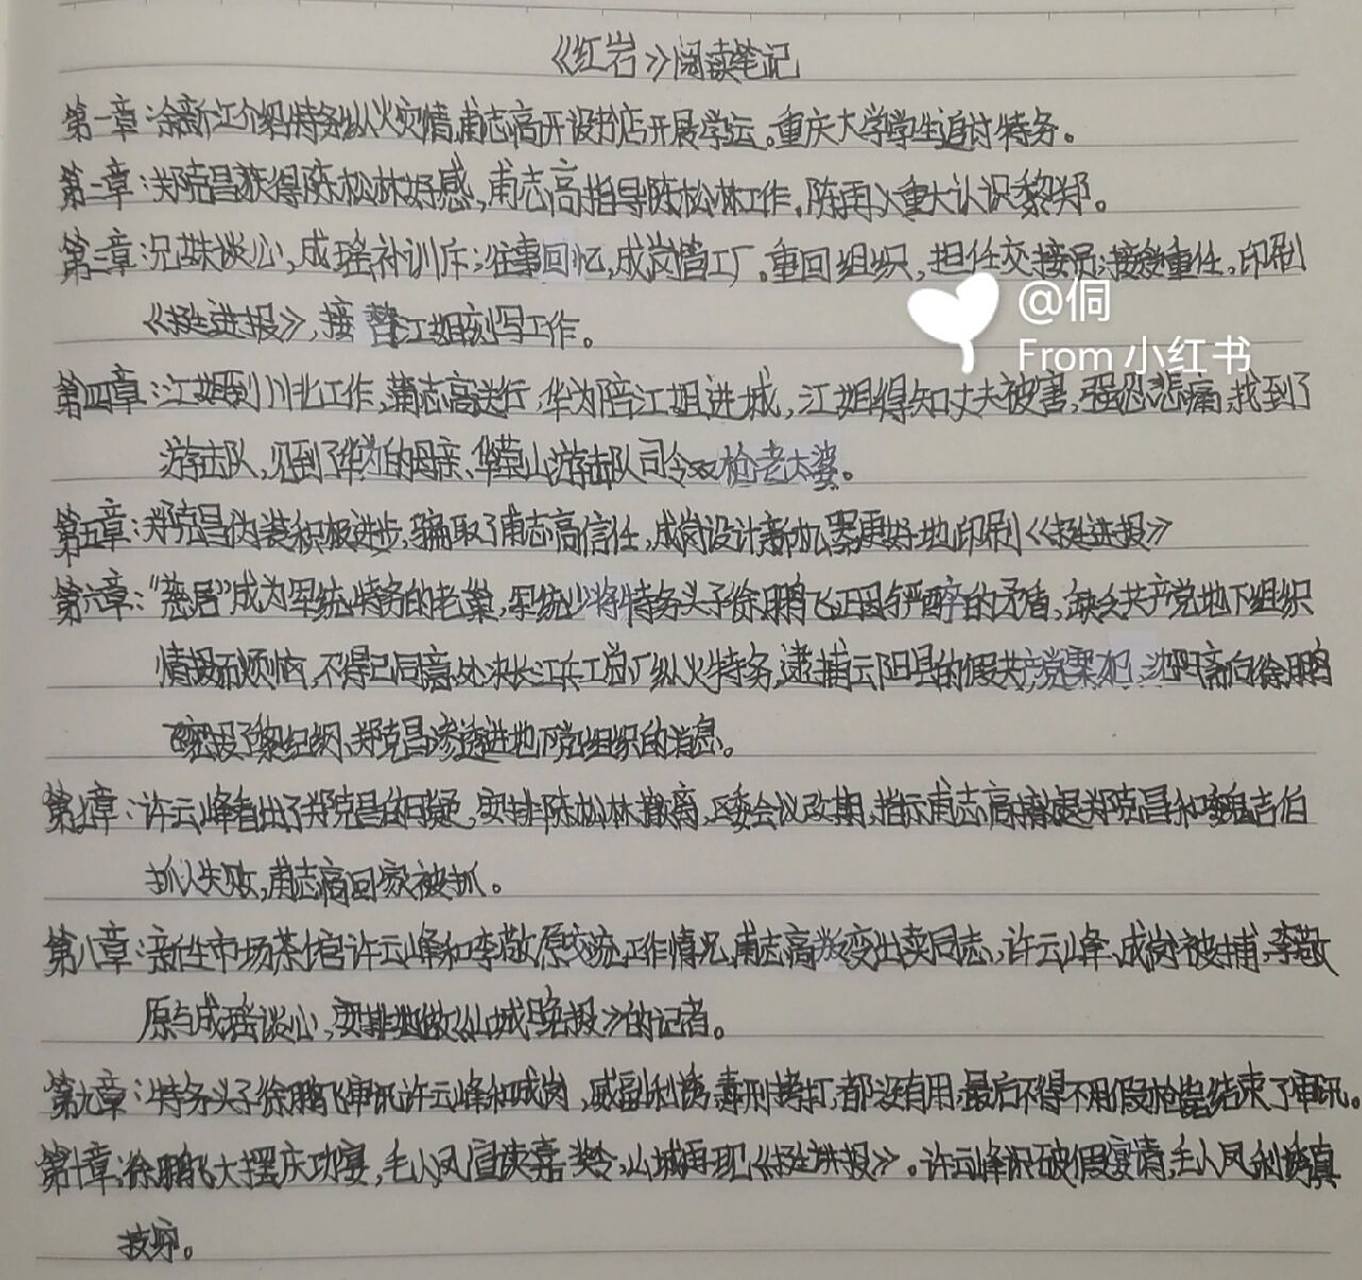 《红岩》阅读笔记
第一章:余新江介绍特务纵火灾情,甫志高开设书店开展学运。重庆大学学生追讨特务。
第二章:郑克昌获得陈松林好感,甫志高指导陈松林工作,陈再入重大认识黎郑。
第三章:兄妹谈心,成瑶补训斥;往事回忆,成岗管工厂。重回组织,担任交接员;接受重任。印刷
《挺进报》,接替江姐刻写工作。
第四章:江姐到川北工作,蒲志高送行,华为陪江姐进城,江姐得知丈夫被害,强忍悲痛,找到了
游击队,见到了华为的母亲、华蓥山游击队司令双枪老太婆。
第五章:郑克昌伪装积极进步,骗取了甫志高信任,成岗设计新机器更好地印刷《挺进报》
第六章:"慈居"成为军统特务的老巢,军统少将特务头子徐鹏飞正因与严醉的矛盾,缺乏共产党地下组织
情报而烦恼,不得已同意处决长江兵工总厂纵火特务,逮捕云阳县的假共产党案犯,沈养斋向徐鹏
密报了黎纪纲、郑克昌渗透进地下党组织的消息。
第七章:许云峰看出了郑克昌的可疑,安排陈松林撤离,区委会议改期,指示甫志高撤退郑克昌和魏吉伯
抓人失败,甫志高回家被抓。
第八章:新生市场茶馆许云峰和李敬原交流工作情况,甫志高叛变出卖同志,许云峰、成岗被捕,李敬
原与成瑶谈心,安排她做《山城晚报》的记者。
第九章:特务头子徐鹏飞审讯许云峰和成岗,威副利诱,毒刑拷打,都没有用,最后不得不用假枪毙结束了审讯。
第十章:徐鹏飞大摆庆功宴,毛人凤宣读嘉奖令,山城再现《挺进报》。许云峰识破假宴请,毛人凤利诱真
技穷。
@侗
From 小红书